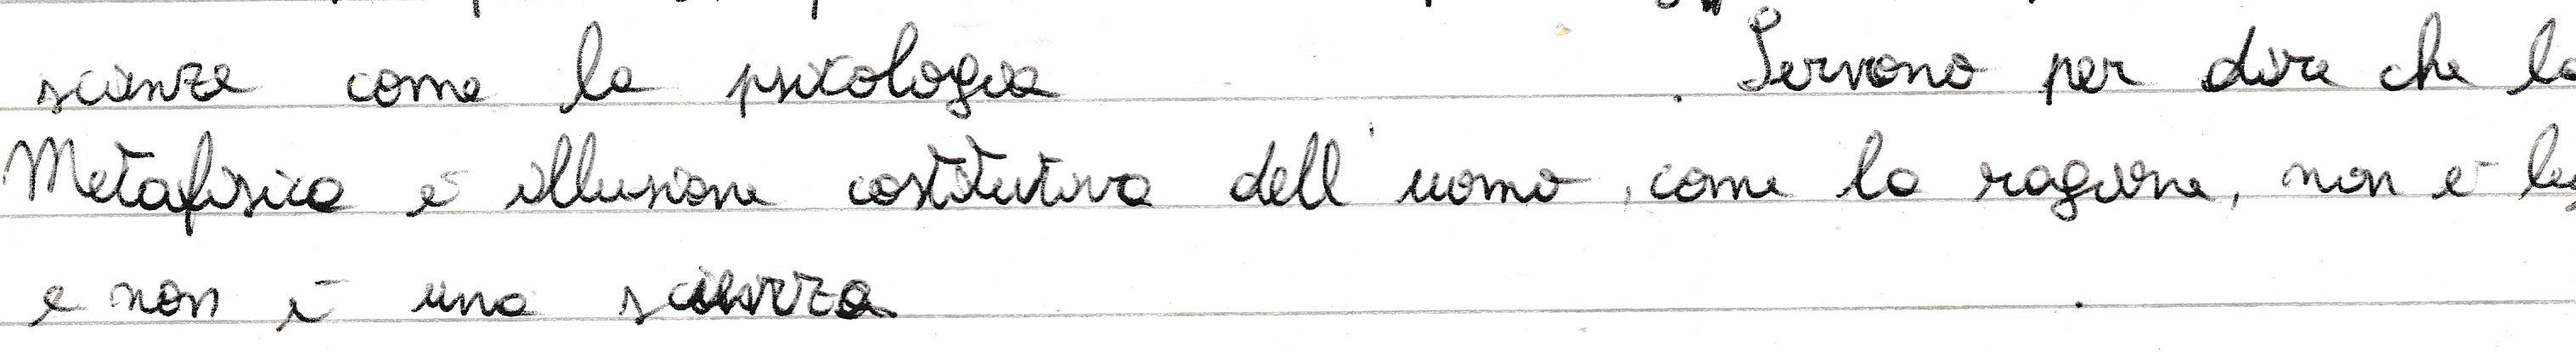 scienze come la psicologia . Servono per dire che la
Metafisica è illusione costitutiva dell'uomo, come la ragione, non è
e non è una scienza .